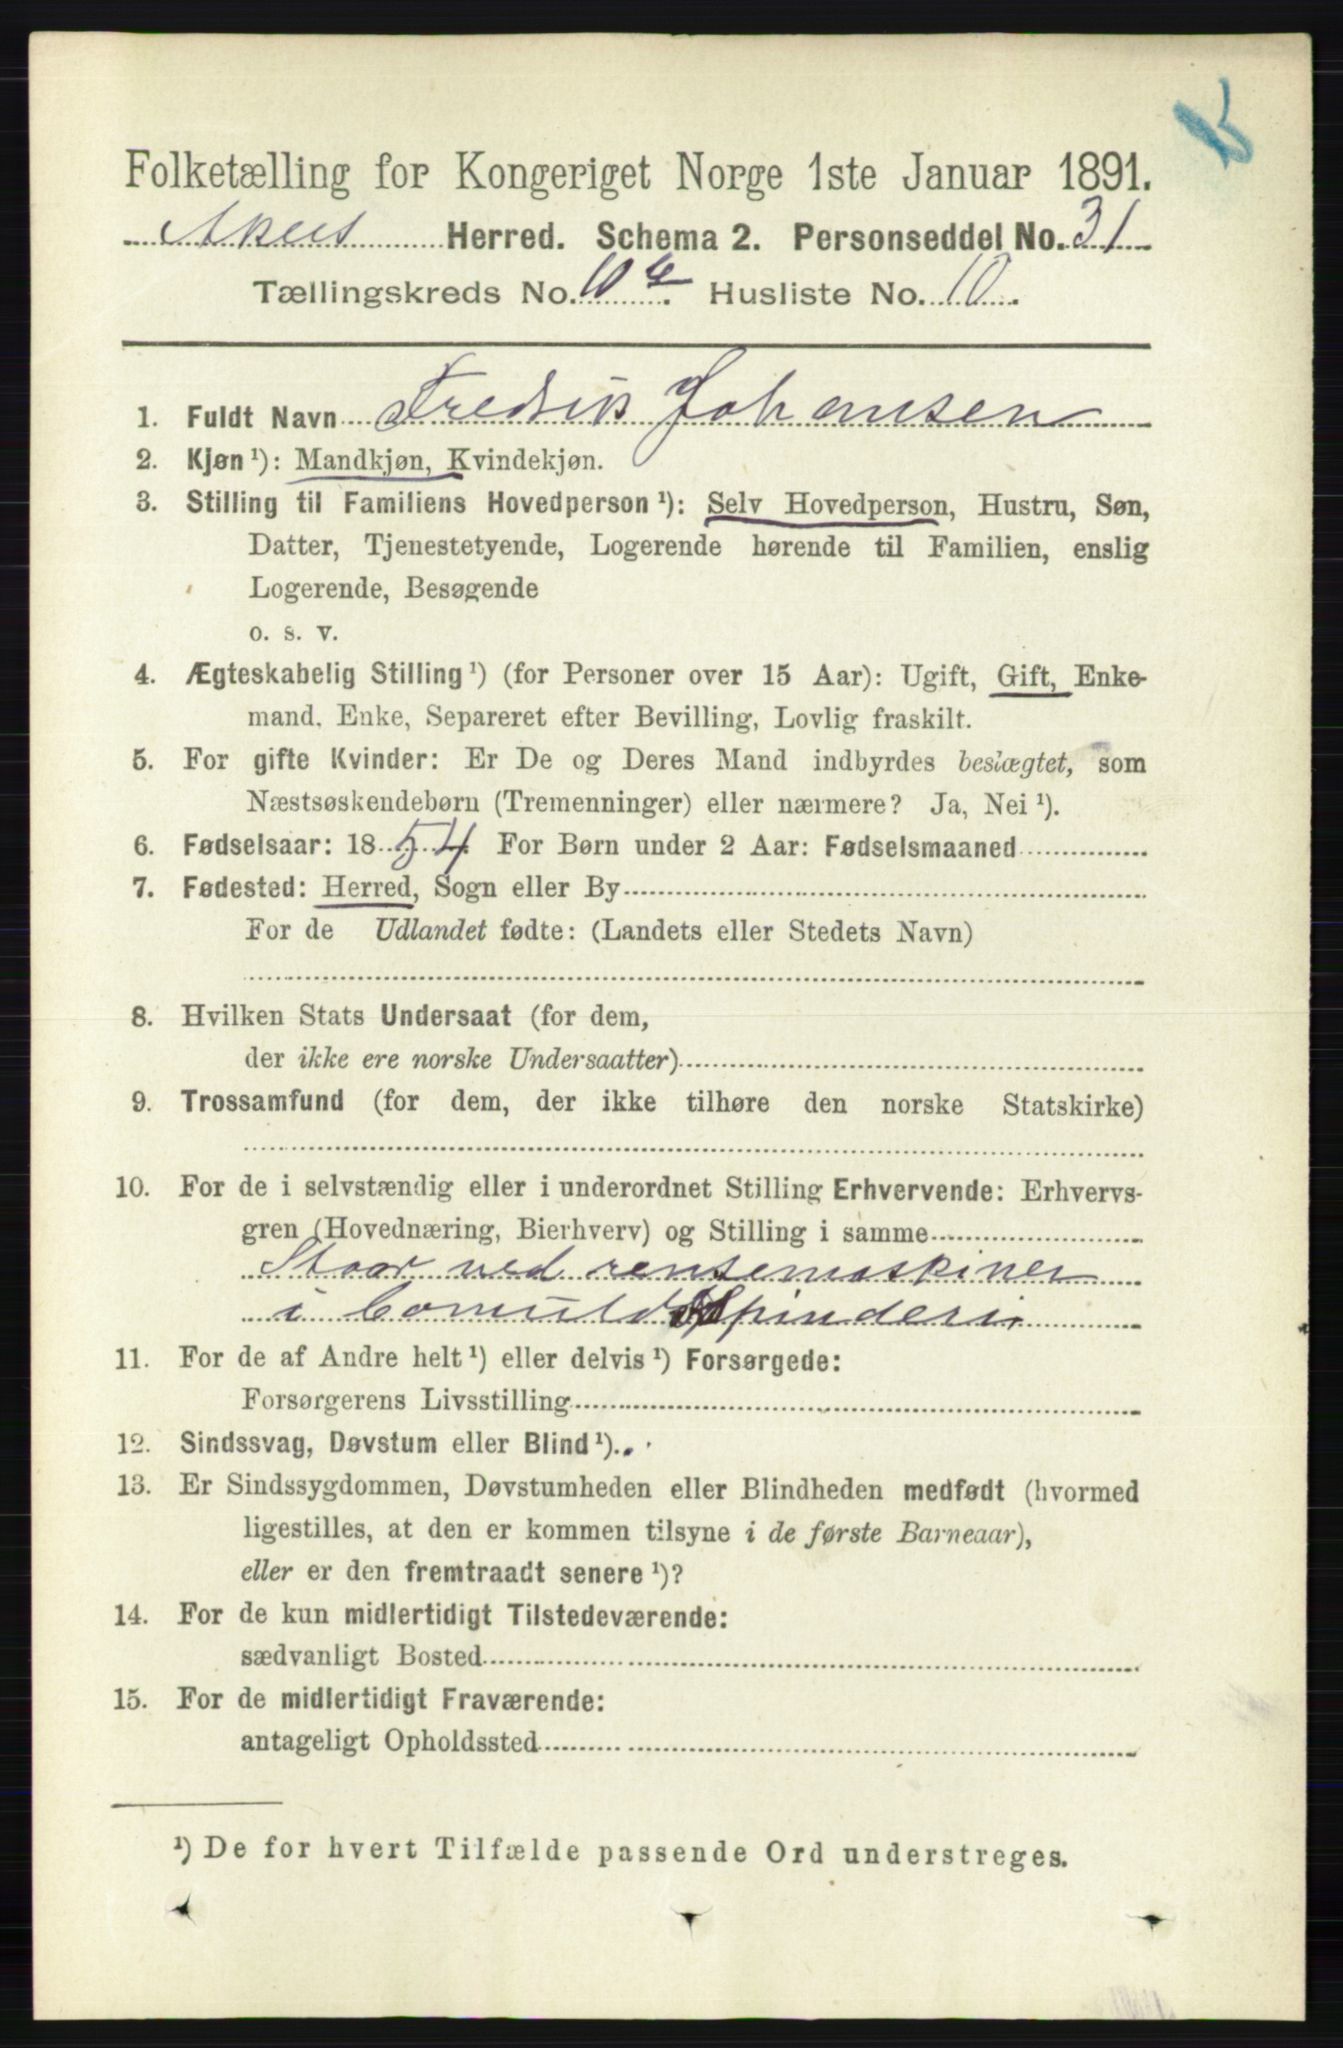 Folketælling for Kongeriget Norge 1ste Januar 1891.
Akers Herred. Schema 2. Personseddel No. 31
Tællingskreds No. 10 . Husliste No. 10.
1. Fuldt Navn Fredrik Johansen
2. Kjøn ¹): Mandkjøn, Kvindekjøn.
3. Stilling til Familiens Hovedperson ¹): Selv Hovedperson, Hustru, Søn,
Datter, Tjenestetyende, Logerende hørende til Familien, enslig
Logerende, Besøgende
o. s. v.
4. Ægteskabelig Stilling ¹) (for Personer over 15 Aar): Ugift, Gift, Enke-
mand, Enke, Separeret efter Bevilling, Lovlig fraskilt.
5. For gifte Kvinder: Er De og Deres Mand indbyrdes beslægtet, som
Næstsøskendebørn (Tremenninger) eller nærmere? Ja, Nei ¹).
6. Fødselsaar: 1854 For Børn under 2 Aar: Fødselsmaaned
7. Fødested: Herred, Sogn eller By
For de Udlandet fødte: (Landets eller Stedets Navn)
8. Hvilken Stats Undersaat (for dem,
der ikke ere norske Undersaatter)
9. Trossamfund (for dem, der ikke tilhøre den norske Statskirke)
10. For de i selvstændig eller i underordnet Stilling Erhvervende: Erhvervs-
gren (Hovednæring, Bierhverv) og Stilling i samme
Staar ved rensemaskinen
i Bomulds Spinderi
11. For de af Andre helt ¹) eller delvis ¹) Forsørgede:
Forsørgerens Livsstilling
12. Sindssvag, Døvstum eller Blind ¹).
13. Er Sindssygdommen, Døvstumheden eller Blindheden medfødt (hvormed
ligestilles, at den er kommen tilsyne i de første Barneaar),
eller er den fremtraadt senere ¹)?
14. For de kun midlertidigt Tilstedeværende:
sædvanligt Bosted
15. For de midlertidigt Fraværende:
antageligt Opholdssted
¹) De for hvert Tilfælde passende Ord understreges.